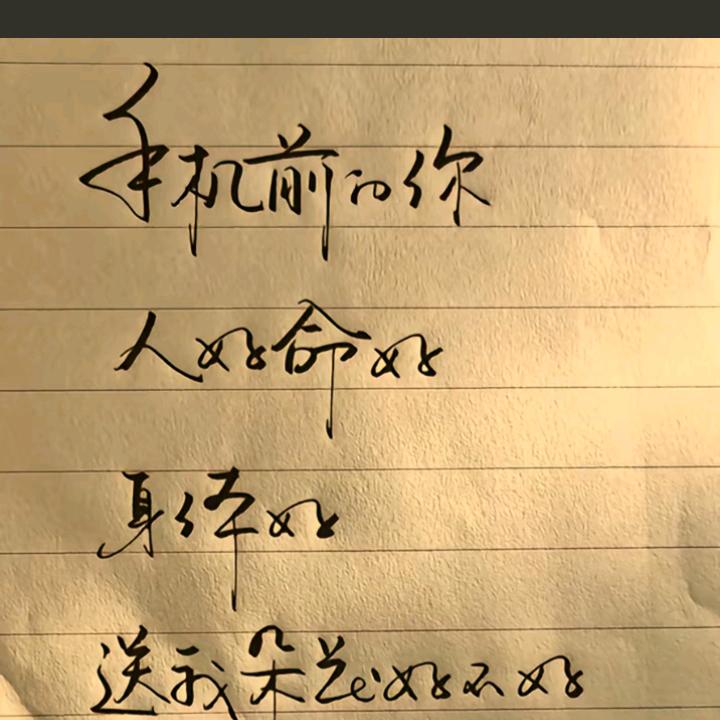 手机前的你
人好命好
身体好
送我朵花好不好